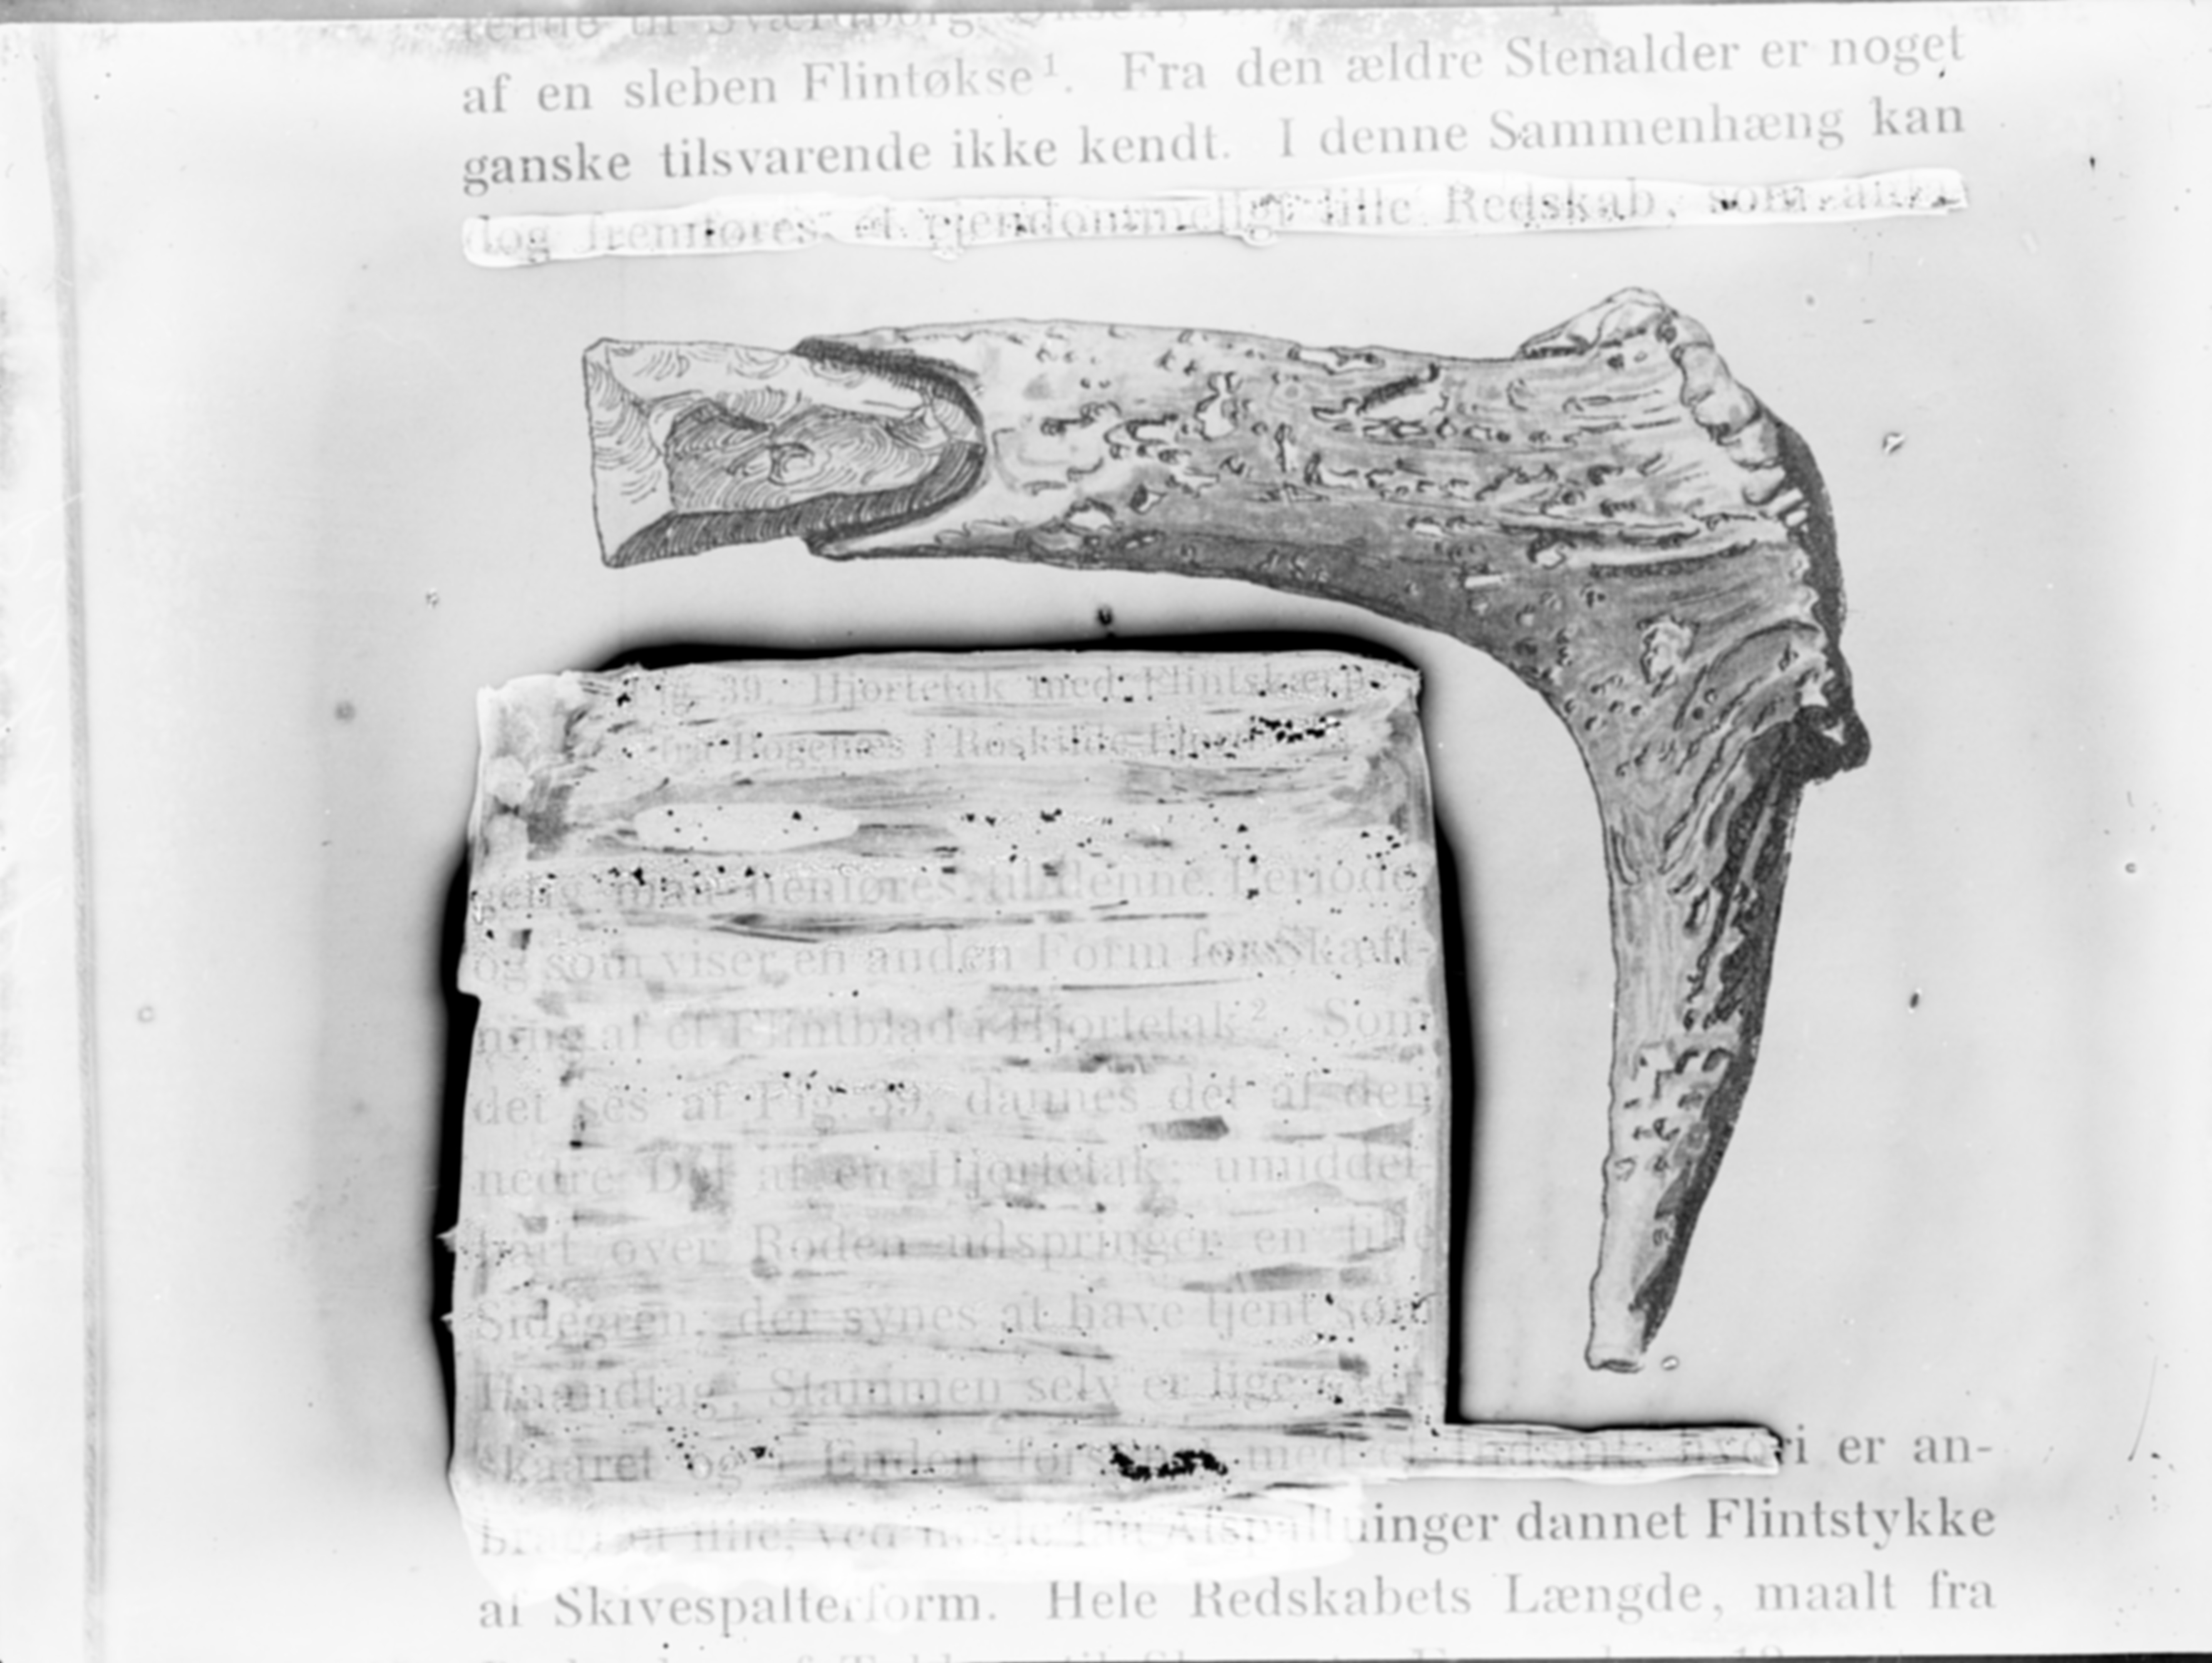 af en sleben Flintøkse¹. Fra den ældre Stenalder er noget
ganske tilsvarende ikke kendt. I denne Sammenhæng kan
dog fremføres et ejendommeligt lille Redskab, som
Fig. 39. Hjortetak med Flintskærp
fra Bogenæs i Roskilde Fjord
gelig maa henføres til denne Periode,
og som viser en anden Form for Skæft-
ning af et Flintblad i Hjortetak². Som
det ses af Fig. 39, dannes det af den
nedre Del af en Hjortetak; umiddel-
bart over Roden udspringer en lille
Sidegren, der synes at have tjent som
Haandtag. Stammen selv er lige over-
skaaret og i Enden forsynet med et Indsnit, hvori er an-
bragt et lille, ved nogle fin Afspaltninger dannet Flintstykke
af Skivespalterform. Hele Redskabets Længde, maalt fra